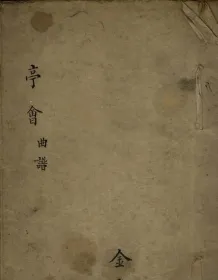 亭會曲譜
金